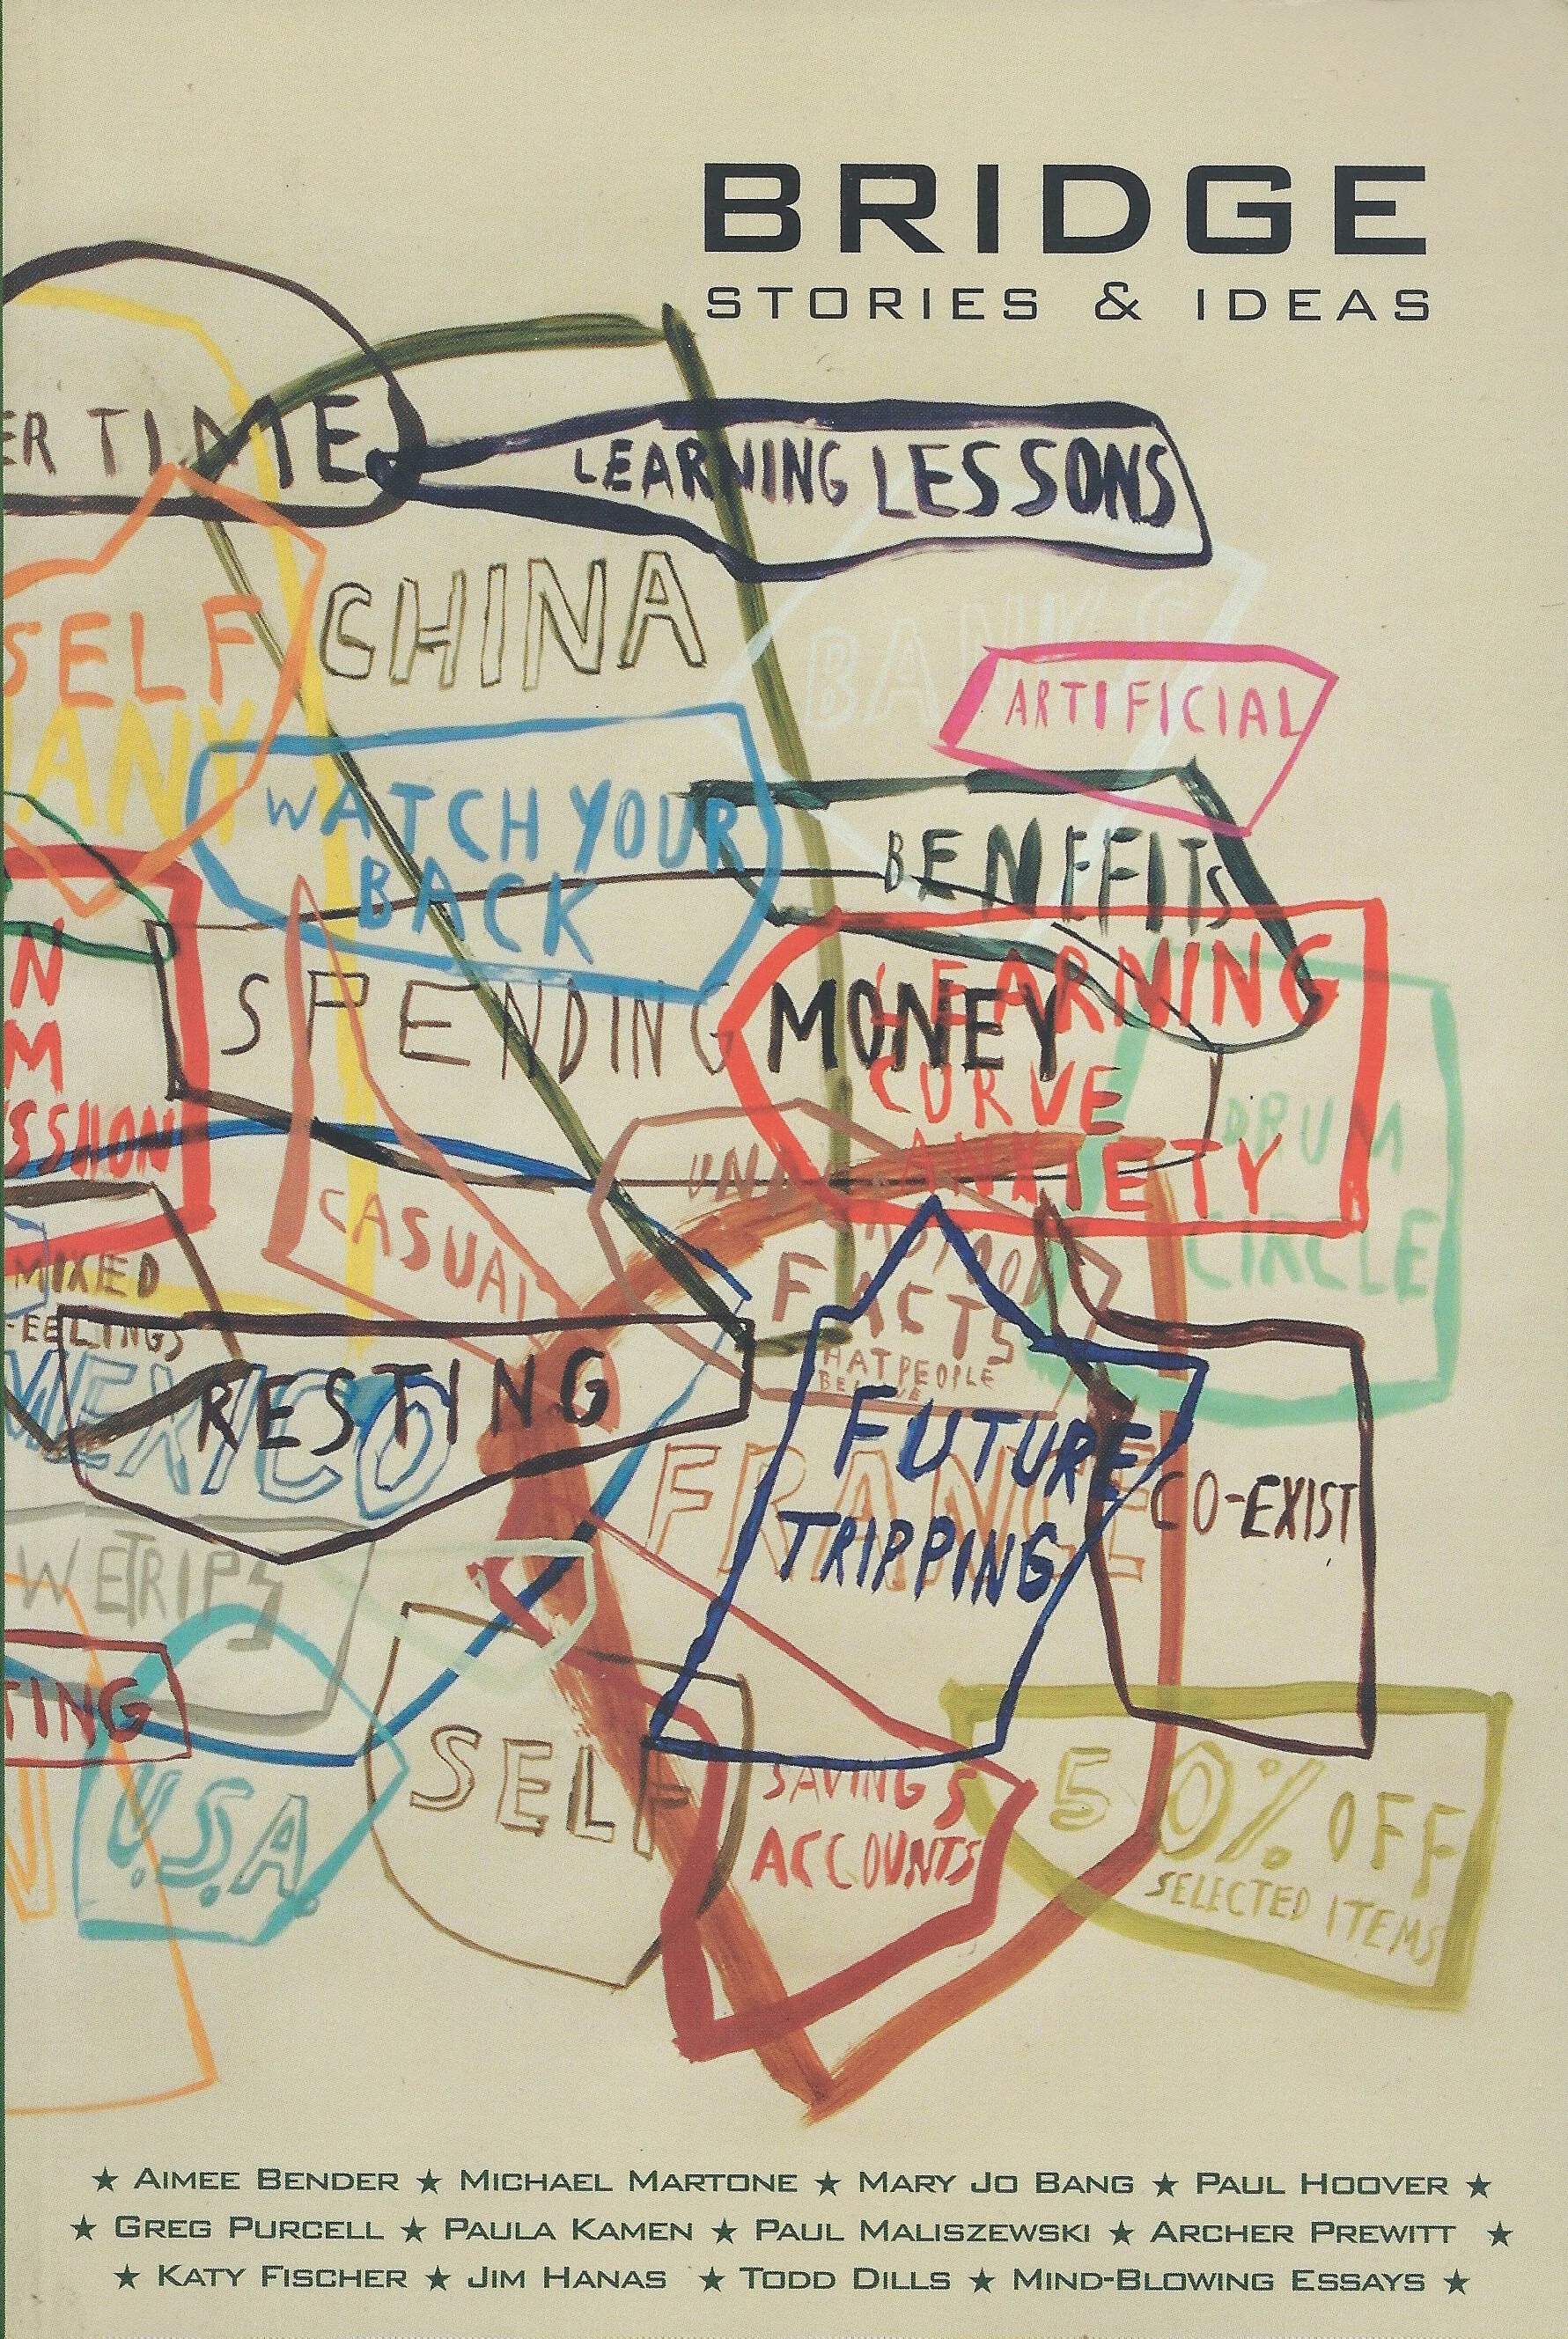 BRIDGE
STORIES & IDEAS
ER TIME
LEARNING LESSONS
CHINA
BANKS
SELF
ARTIFICIAL
ANY
WATCH YOUR
BACK
BENEFITS
N
M
SSION
SPENDING MONEY
LEARNING
CURVE
ANXIETY
DRUM
CIRCLE
CASUAL
FACTS
THAT PEOPLE
BELIEVE
MIXED
FEELINGS
MEXICO
RESTING
FUTURE
TRIPPING
FRANCE
CO-EXIST
WETRIPS
TING
U.S.A.
SELF
SAVINGS
ACCOUNTS
50% OFF
SELECTED ITEMS
★ AIMEE BENDER ★ MICHAEL MARTONE ★ MARY JO BANG ★ PAUL HOOVER ★
★ GREG PURCELL ★ PAULA KAMEN ★ PAUL MALISZEWSKI ★ ARCHER PREWITT ★
★ KATY FISCHER ★ JIM HANAS ★ TODD DILLS ★ MIND-BLOWING ESSAYS ★